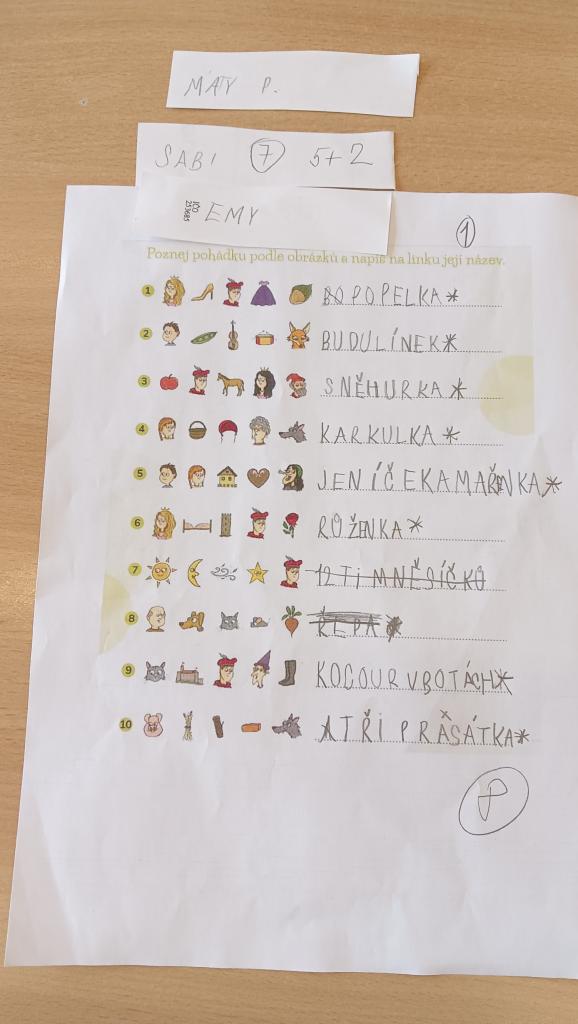 MÁTY P.
SABI 7 5+2
IČO
253685
EMY
1
Poznej pohádku podle obrázků a napiš na linku její název.
1 POPELKA*
2 BUDULÍNEK*
3 SNĚHURKA*
4 KARKULKA*
5 JENÍČEKAMAŘENKA*
6 RŮŽENKA*
7 12 Ti MNĚSÍČKŮ
8 ŘEPA
9 KOCOUR V BOTÁCH*
10 TŘI PRASÁTKA*
8